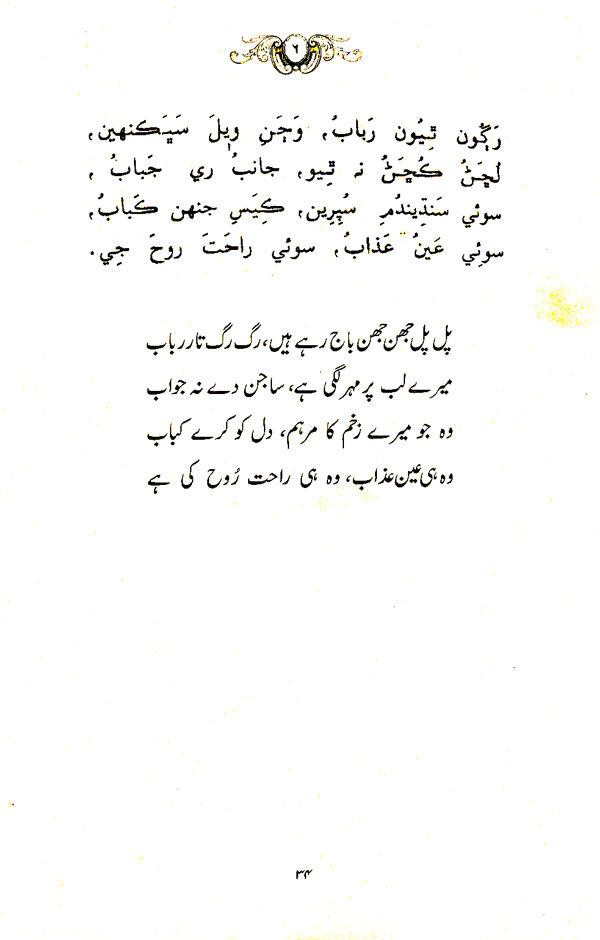 ٦
رَڳُون ٿِيُون رَبابُ، وَڄَنِ ويلَ سَڀَڪنهين،
لُڇَڻُ ڪُڇَڻُ نہ ٿِيو، جانبُ ري جَبابُ،
سوئي سَنڌِيندُمِ سُپِرِين، ڪِيَسِ جنهن ڪَبابُ،
سوئِي عَينُ عَذابُ، سوئي راحَتَ روحَ جِي.
پل پل جھن جھن باج رہے ہیں، رگ رگ تار رباب
میرے لب پر مہر لگی ہے، ساجن دے نہ جواب
وہ جو میرے زخم کا مرہم، دل کو کرے کباب
وہ ہی عین عذاب، وہ ہی راحت رُوح کی ہے
۳۴